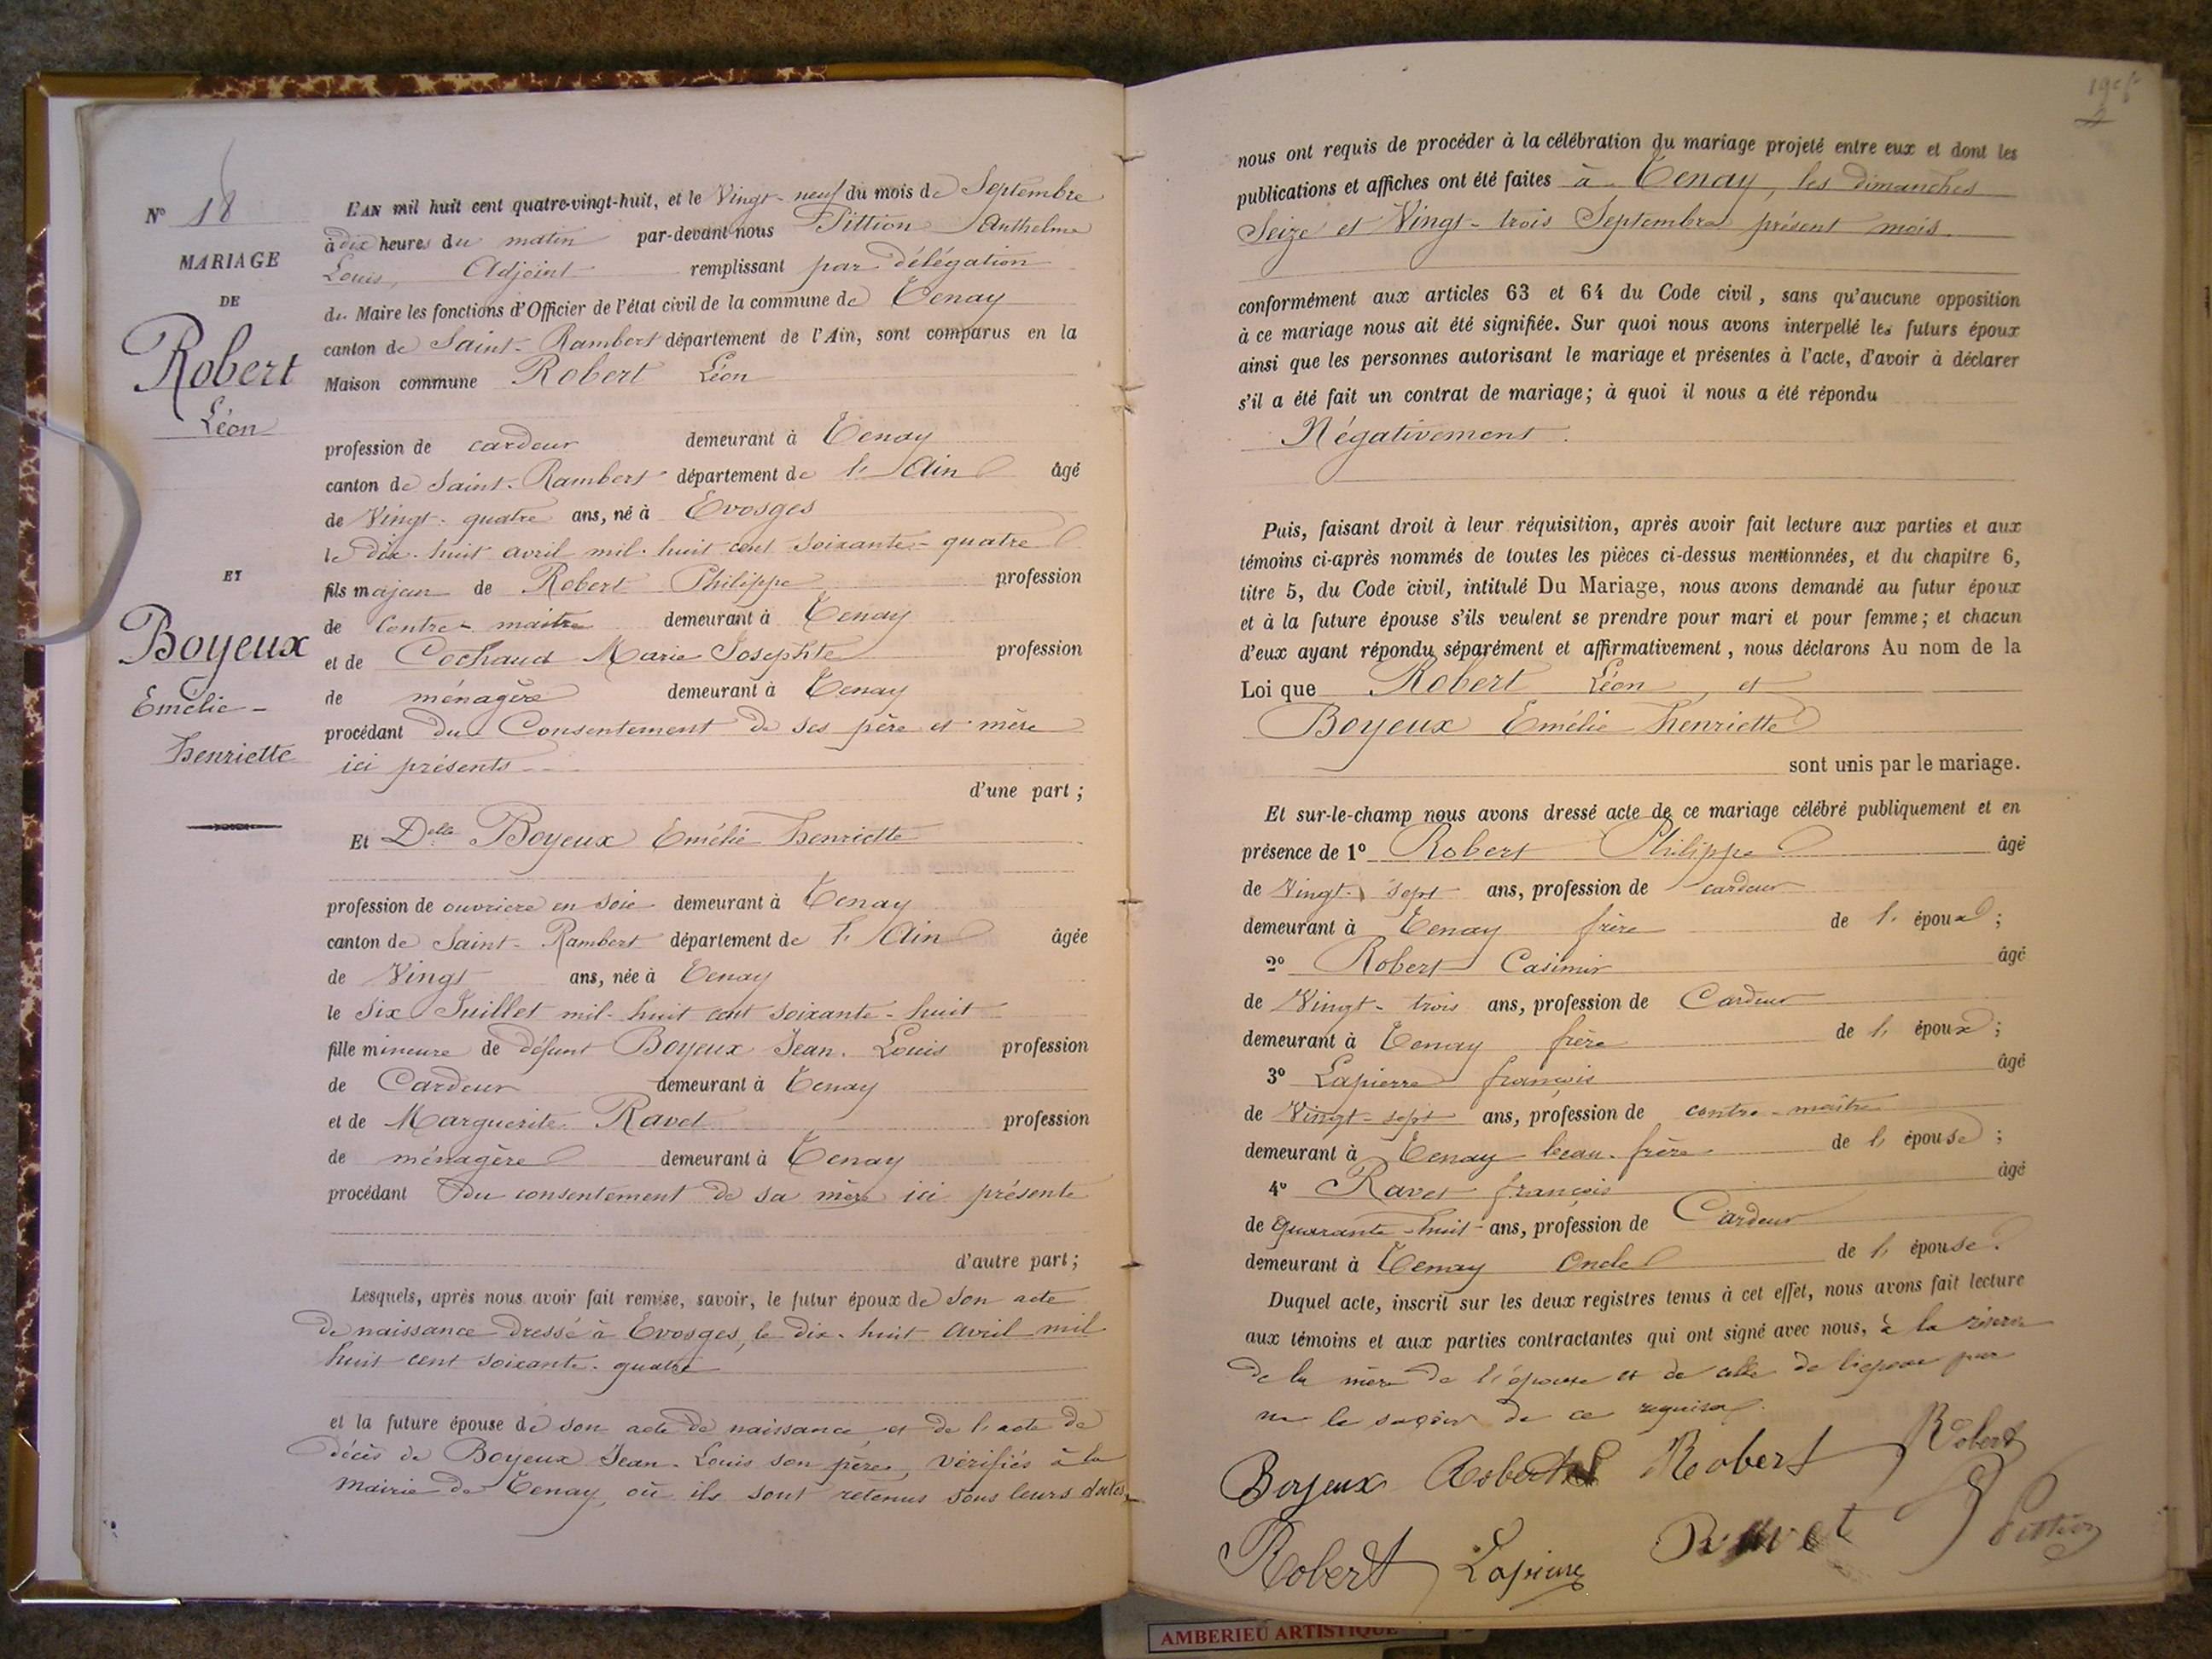 Nº 18
MARIAGE
DE
Robert
Léon
ET
Boyeux
Emélie-
Henriette
L'AN mil huit cent quatre-vingt-huit, et le Vingt-neuf du mois de Septembre
à dix heures du matin par-devant nous Pittion Anthelme
Louis, Adjoint remplissant par délégation
du Maire les fonctions d'Officier de l'état civil de la commune de Tenay
canton de Saint-Rambert département de l'Ain, sont comparus en la
Maison commune Robert Léon
profession de cardeur demeurant à Tenay
canton de Saint-Rambert département de l'Ain âgé
de Vingt-quatre ans, né à Evosges
le dix-huit avril mil-huit cent soixante-quatre
fils majeur de Robert Philippe profession
de Contre-maître demeurant à Tenay
et de Cochaud Marie Josephte profession
de ménagère demeurant à Tenay
procédant du Consentement de ses père et mère
ici présents
d'une part ;
Et Delle Boyeux Emélie Henriette
profession de ouvriere en soie demeurant à Tenay
canton de Saint-Rambert département de l'Ain âgée
de Vingt ans, née à Tenay
le six Juillet mil-huit cent soixante-huit
fille mineure de défunt Boyeux Jean-Louis profession
de Cardeur demeurant à Tenay
et de Marguerite Ravet profession
de ménagère demeurant à Tenay
procédant du consentement de sa mère ici présente
d'autre part ;
Lesquels, après nous avoir fait remise, savoir, le futur époux de son acte
de naissance dressé à Evosges, le dix-huit avril mil
huit cent soixante-quatre
et la future épouse de son acte de naissance et de l'acte de
décès de Boyeux Jean-Louis son père, vérifiés à la
mairie de Tenay, où ils sont retenus sous leurs dates,
nous ont requis de procéder à la célébration du mariage projeté entre eux et dont les
publications et affiches ont été faites à Tenay, les dimanches
Seize et Vingt-trois Septembre présent mois.
conformément aux articles 63 et 64 du Code civil, sans qu'aucune opposition
à ce mariage nous ait été signifiée. Sur quoi nous avons interpellé les futurs époux
ainsi que les personnes autorisant le mariage et présentes à l'acte, d'avoir à déclarer
s'il a été fait un contrat de mariage; à quoi il nous a été répondu
Négativement.
Puis, faisant droit à leur réquisition, après avoir fait lecture aux parties et aux
témoins ci-après nommés de toutes les pièces ci-dessus mentionnées, et du chapitre 6,
titre 5, du Code civil, intitulé Du Mariage, nous avons demandé au futur époux
et à la future épouse s'ils veulent se prendre pour mari et pour femme; et chacun
d'eux ayant répondu séparément et affirmativement, nous déclarons Au nom de la
Loi que Robert Léon, et
Boyeux Emélie Henriette
sont unis par le mariage.
Et sur-le-champ nous avons dressé acte de ce mariage célébré publiquement et en
présence de 1º Robert Philippe âgé
de Vingt-sept ans, profession de cardeur
demeurant à Tenay frère de l'époux ;
2º Robert Casimir âgé
de Vingt-trois ans, profession de Cardeur
demeurant à Tenay frère de l'époux ;
3º Lapierre françois âgé
de Vingt-sept ans, profession de contre-maître
demeurant à Tenay beau-frère de l'épouse ;
4º Ravet françois âgé
de Quarante-huit ans, profession de Cardeur
demeurant à Tenay Oncle de l'épouse.
Duquel acte, inscrit sur les deux registres tenus à cet effet, nous avons fait lecture
aux témoins et aux parties contractantes qui ont signé avec nous, à la réserve
de la mère de l'épouse et de celle de l'époux pour
ne le savoir de ce requises.
Boyeux Robert Robert Robert
Robert Lapierre Ravet Pittion
AMBERIEU ARTISTIQUE